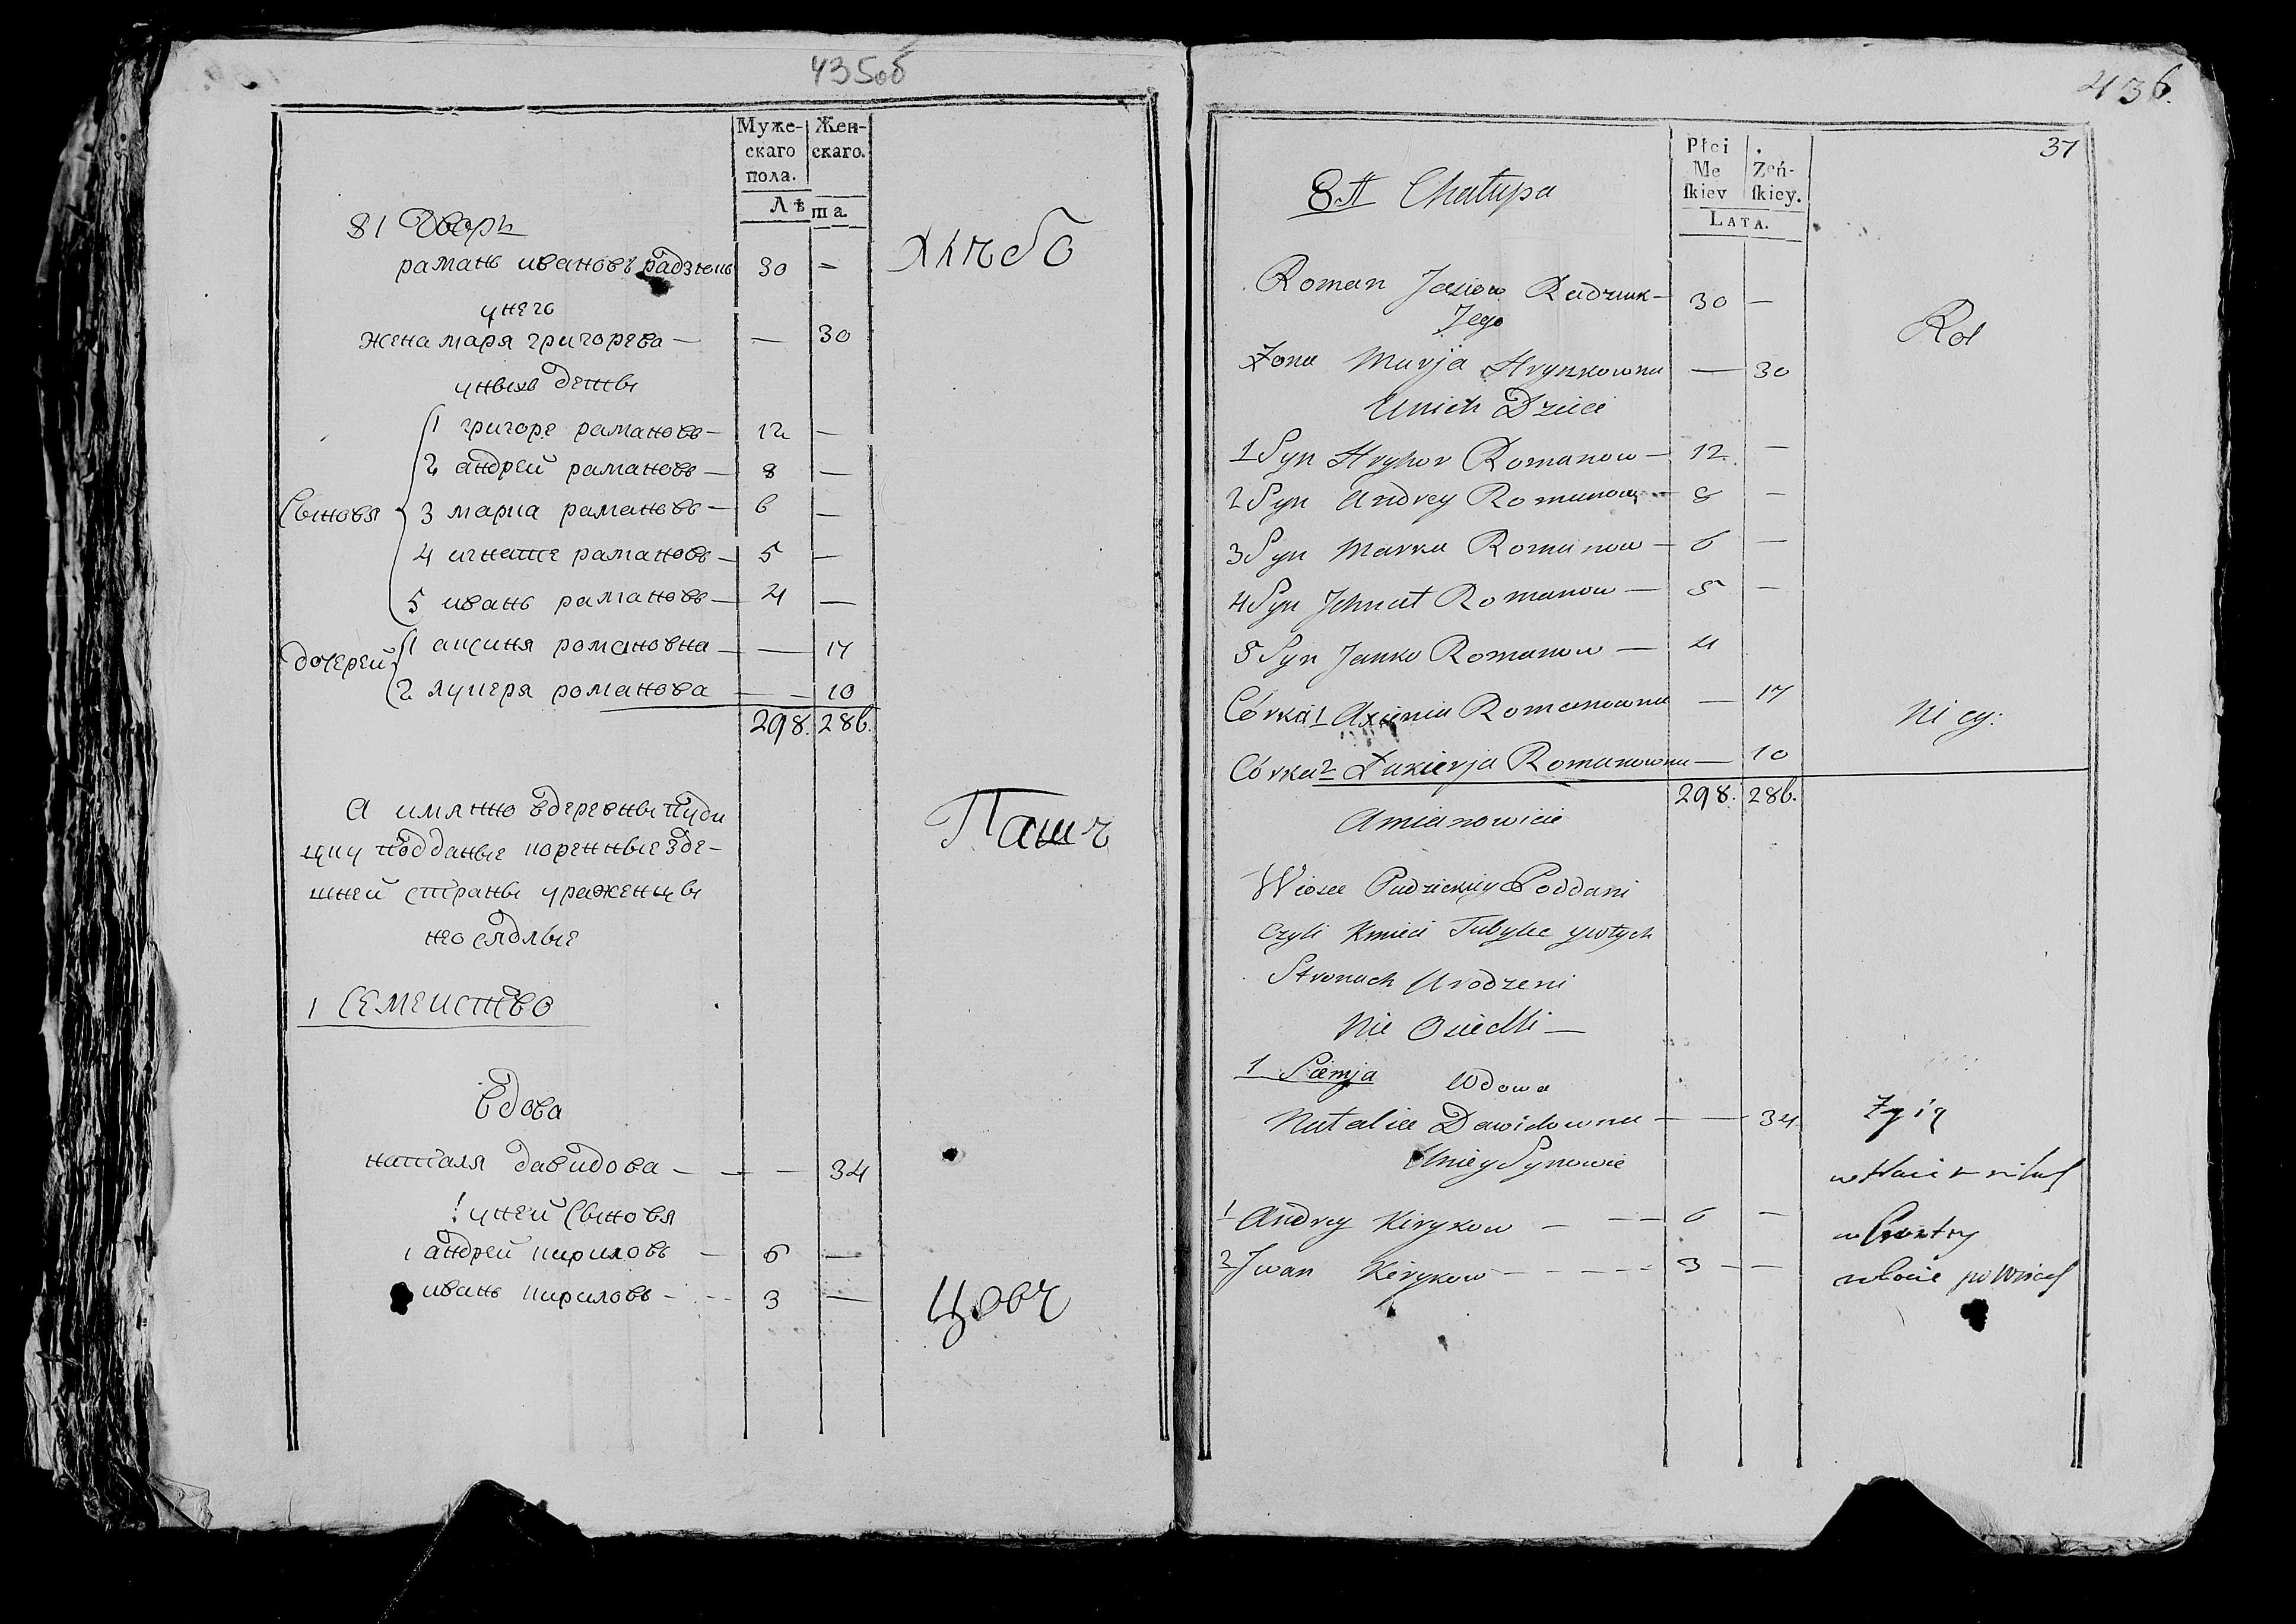 435об
Муже- Жен-
скаго скаго.
пола.
Лѣ та.
81 Дворъ
раманъ ивановъ радзюкъ 30 —
хлѣбо
унего
жена маря григорева — — 30
унихъ дѣтъи
1 григоре рамановъ — 12 —
2 андрей рамановъ — 8 —
Сыновя 3 марка рамановъ — 6 —
4 игнате рамановъ — 5 —
5 иванъ рамановъ — 4 —
дочерей 1 аксиня романовна — — 17
2 лукеря романова — — 10
298. 286.
А имянно вдеревнѣ
Паш
подданые коренные зде-
шней страны уроженцы
не оседлые
1 Семейство
вдова
наталя давидова — — — 34
уней Сыновя
1 андрей кириловъ — 6 —
иванъ кириловъ — 3 —
436.
37
Płci .
Me Żeń-
skiey skiey.
LATA.
81 Chałupa
Roman Jasiow Radziuk — 30 —
Jego
Rol
Żona Marja Hrynkowna — 30
Unich Dzieci
1 Syn Hryhor Romanow — 12. —
2 Syn Andrey Romanow — 8 —
3 Syn Marka Romanow — 6 —
4 Syn Jchnat Romanow — 5 —
5 Syn Janko Romanow — 4
Córka 1 Axienia Romanowna — 17
Ni cy:
Córka 2 Łukierja Romanowna — 10
298. 286.
Amianowicie
Wiosce Poddani
Czyli Kmieci Tubylce ywtych
Stronach Urodzeni
Nie Osiedli —
1 Siemja Wdowa
Natalia Dawidowna — — 34.
Żyią
Uniey Synowie
1 Andrey Kirykow — — — 6 —
2 Jwan Kirykow — — — — 3 — —